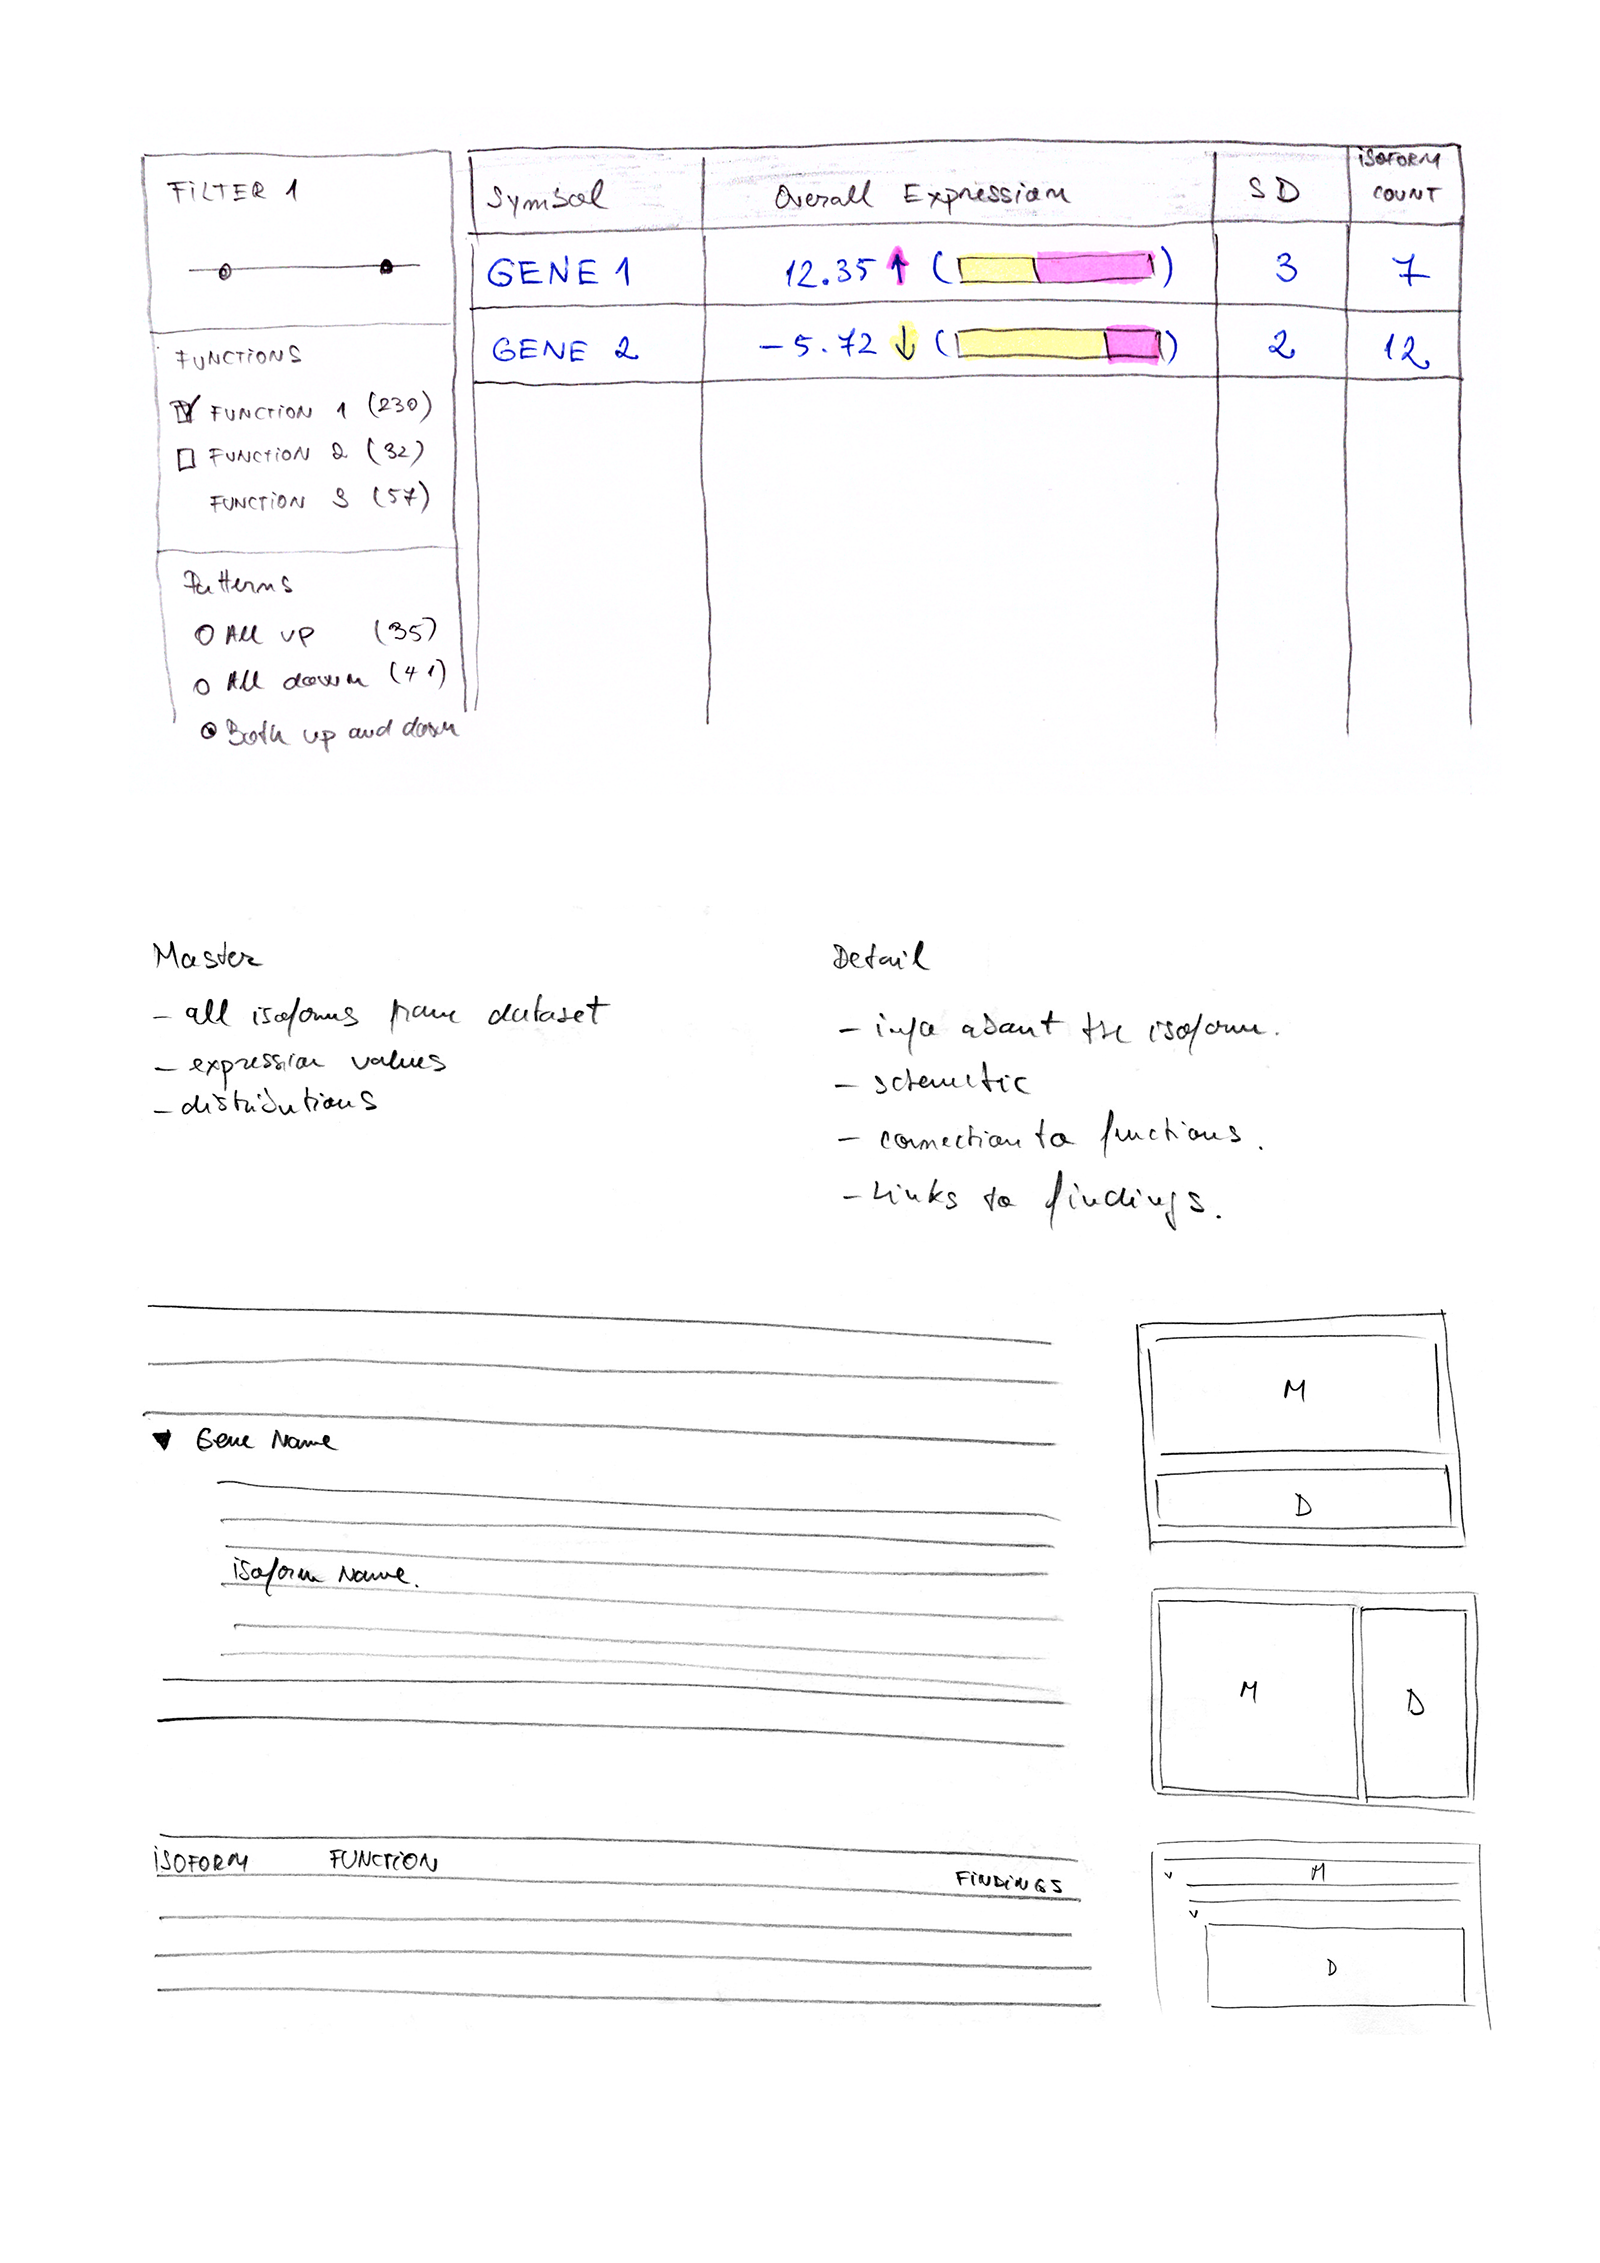 FILTER 1
FUNCTIONS
FUNCTION 1 (230)
FUNCTION 2 (32)
FUNCTION 3 (57)
Patterns
All up (35)
All down (41)
Both up and down
Symbol Overall Expression SD ISOFORM COUNT
GENE 1 12.35 ↑ ( ) 3 7
GENE 2 -5.72 ↓ ( ) 2 12
Master
- all isoforms from dataset
- expression values
- distributions
Detail
- info about the isoform.
- schematic
- connection to functions.
- Links to findings.
Gene Name
isoform Name.
ISOFORM FUNCTION FINDINGS
M
D
M D
M
D